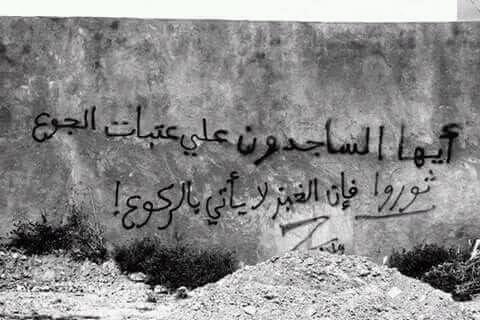 أيها الساجدون علي عتبات الجوع
ثوروا فإن الخبز لا يأتي بالركوع!